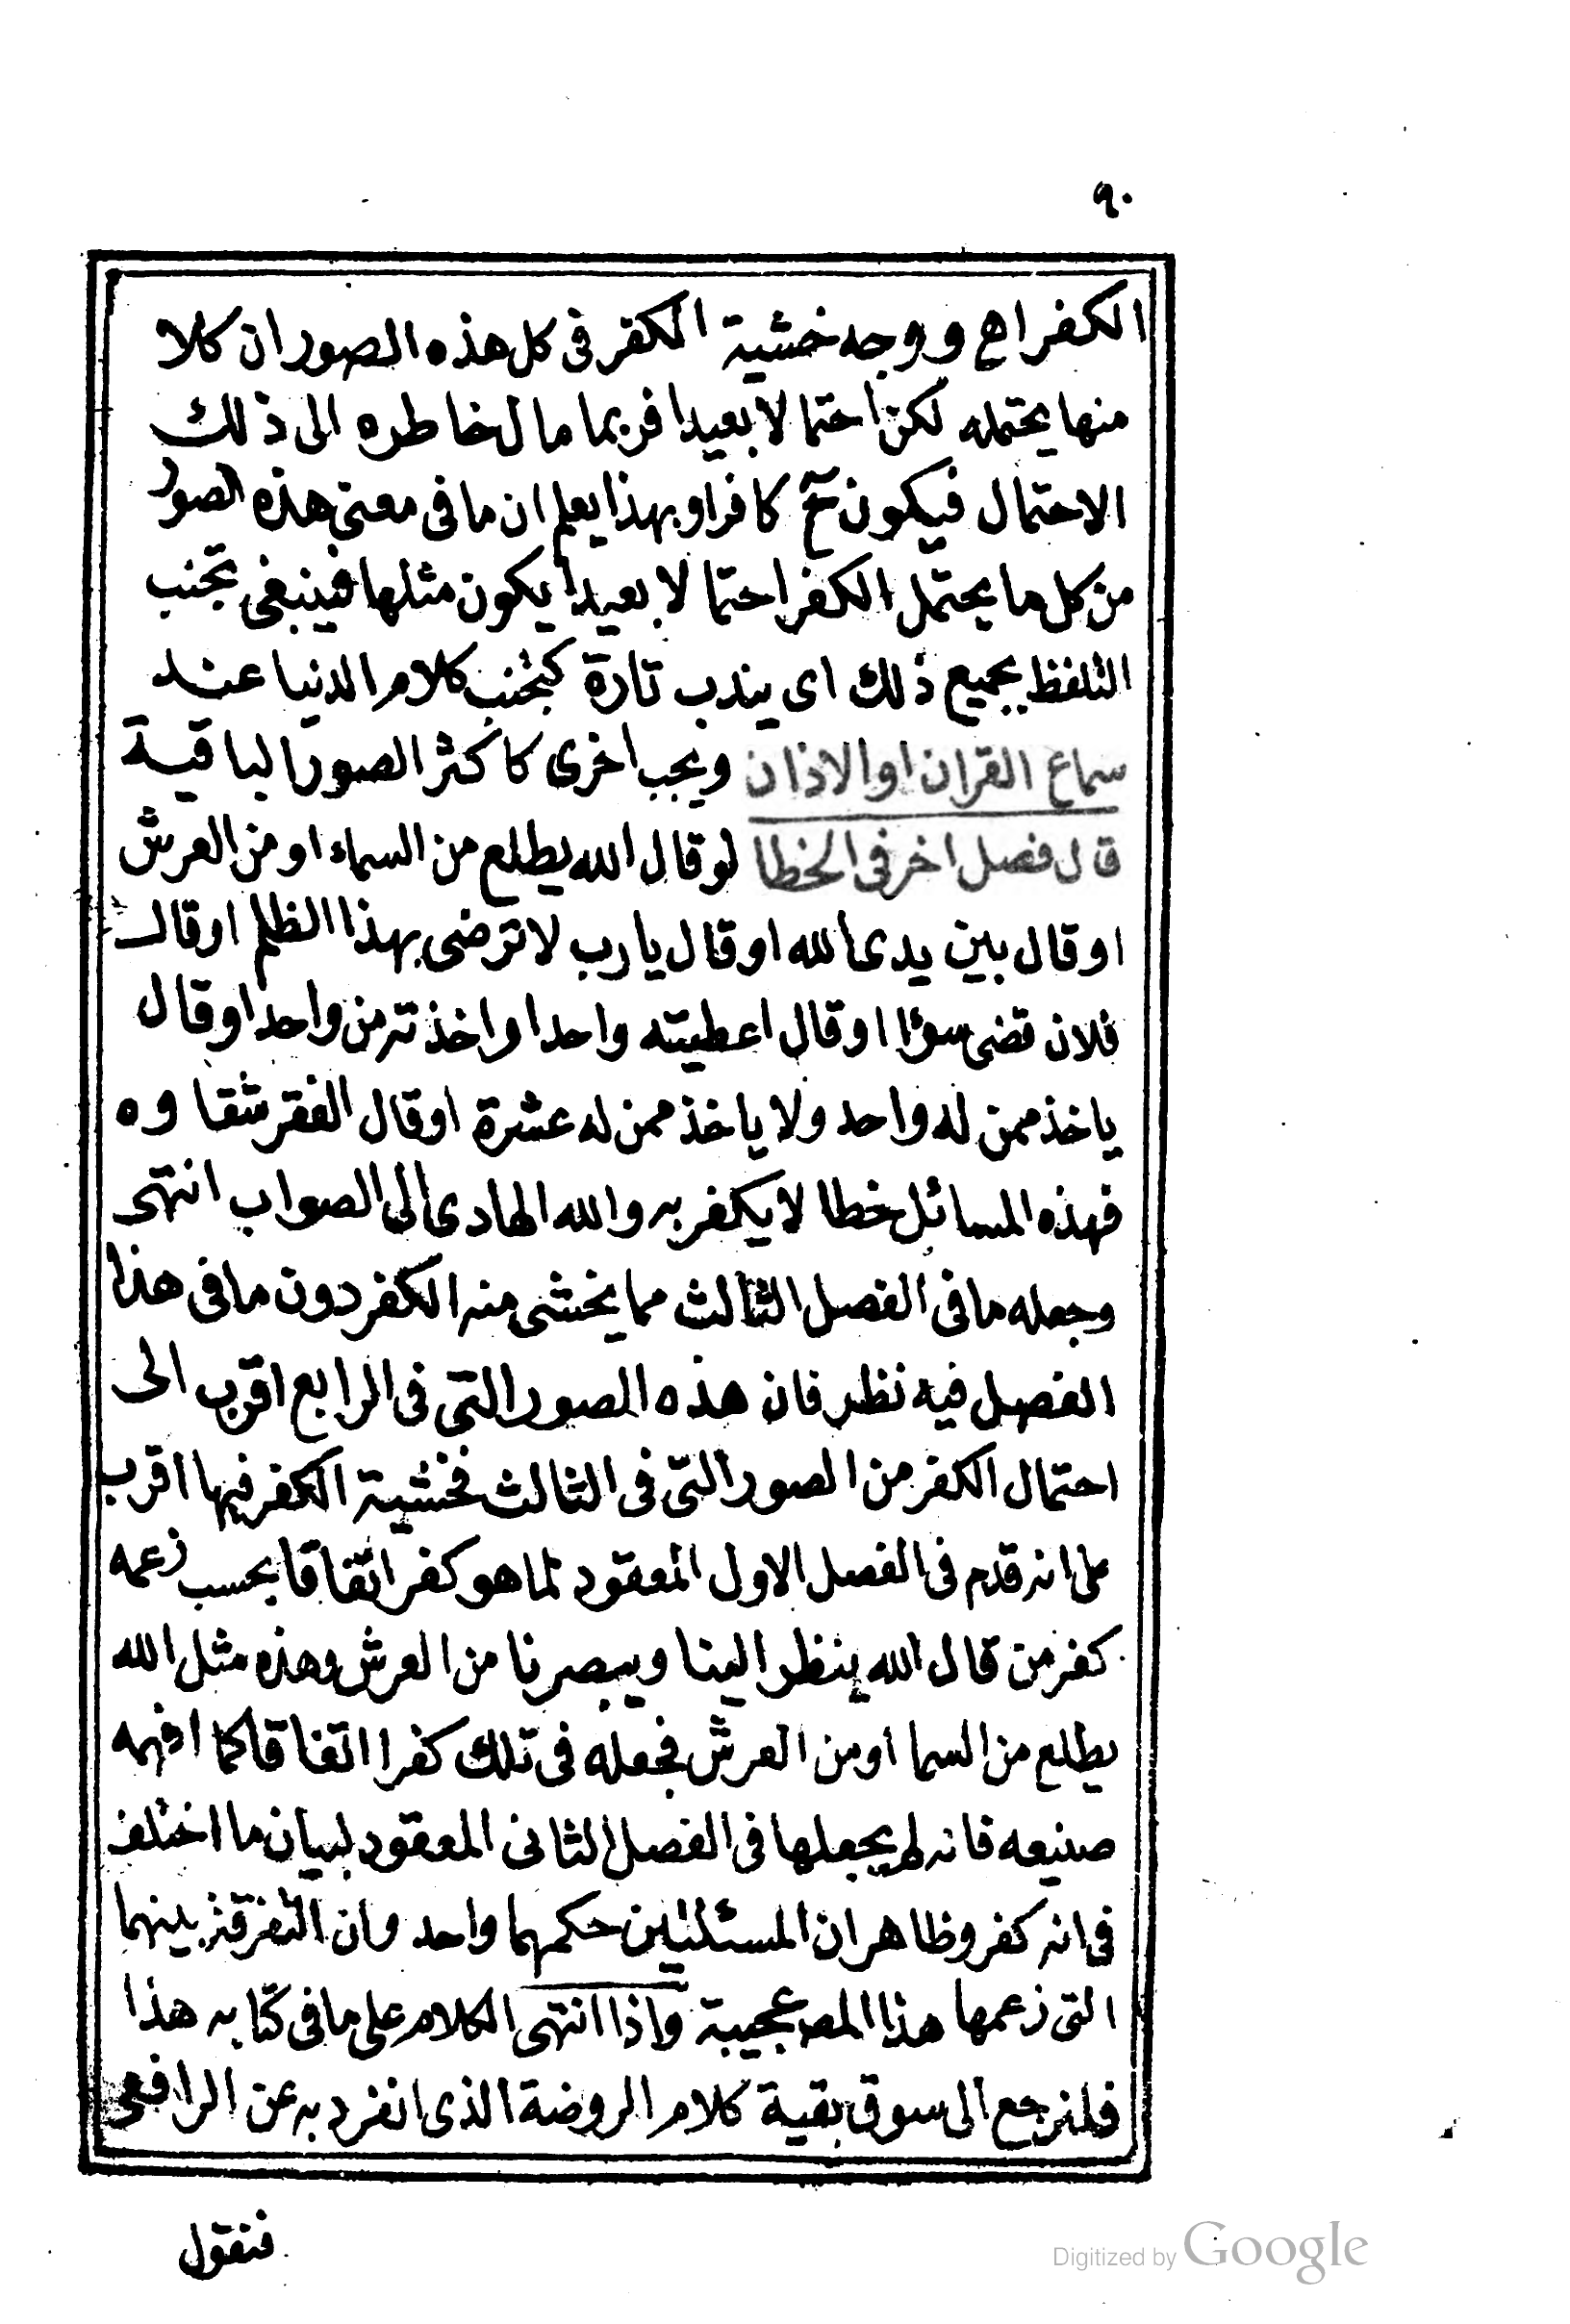 ٩٠
الكفر اهـ ووجه خشية الكفر فى كل هذه الصور ان كلا
منها يحتمله لكن احتمالا بعيدا فربما مال خاطره الى ذلك
الاحتمال فيكون ح كافرا وبهذا يعلم ان ما فى معنى هذه الصور
من كل ما يحتمل الكفر احتمالا بعيدا يكون مثلها فينبغى تجنب
التلفظ بجميع ذلك اى يندب تارة كتجنب كلام الدنيا عند
سماع القران او الاذان ويجب اخرى كاكثر الصور الباقية
قال فصل اخر فى الخطا لو قال الله يطلع من السماء او من العرش
او قال بين يدى الله او قال يارب لا ترضى بهذا الظلم او قال
فلان قضى سؤا او قال اعطيته واحدا واخذته من واحد او قال
ياخذ ممن له واحد ولا ياخذ ممن له عشرة او قال الفقر شقاوه
فهذه المسائل خطا لا يكفر به والله الهادى الى الصواب انتهى
وجعله ما فى الفصل الثالث مما يخشى منه الكفر دون ما فى هذا
الفصل فيه نظر فان هذه الصور التى فى الرابع اقرب الى
احتمال الكفر من الصور التى فى الثالث فخشية الكفر فيها اقرب
على انه قدم فى الفصل الاول المعقود لما هو كفر اتفاقا بحسب زعمه
كفر من قال الله ينظر الينا ويبصرنا من العرش وهذه مثل الله
يطلع من السما او من العرش فجعله فى تلك كفرا اتفاقا كما افهمه
صنيعه فانه لم يجعلها فى الفصل الثانى المعقود لبيان ما اختلف
فى انه كفر وظاهر ان المسئلتين حكمهما واحد وان التفرقة بينهما
التى زعمها هذا المص عجيبة واذا انتهى الكلام على ما فى كتابه هذا
فلنرجع الى سوق بقية كلام الروضة الذى انفرد به عن الرافعى
فنقول
Digitized by Google